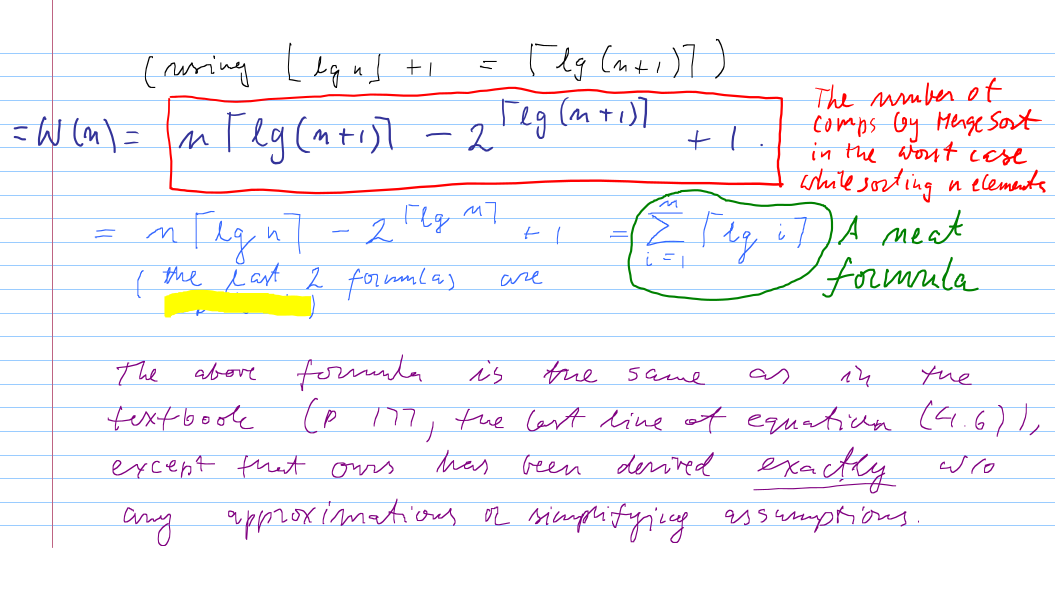 (using ⌊lg n⌋ + 1 = ⌈lg (n+1)⌉)
= W(n) = n⌈lg(n+1)⌉ − 2^⌈lg(n+1)⌉ + 1.
The number of
comps by MergeSort
in the worst case
while sorting n elements
= n⌈lg n⌉ − 2^⌈lg n⌉ + 1 = ∑_{i=1}^{n} ⌈lg i⌉
A neat
formula
(the last 2 formulas are
)
The above formula is the same as in the
textbook (p 177, the last line of equation (4.6)),
except that ours has been derived exactly w/o
any approximations or simplifying assumptions.